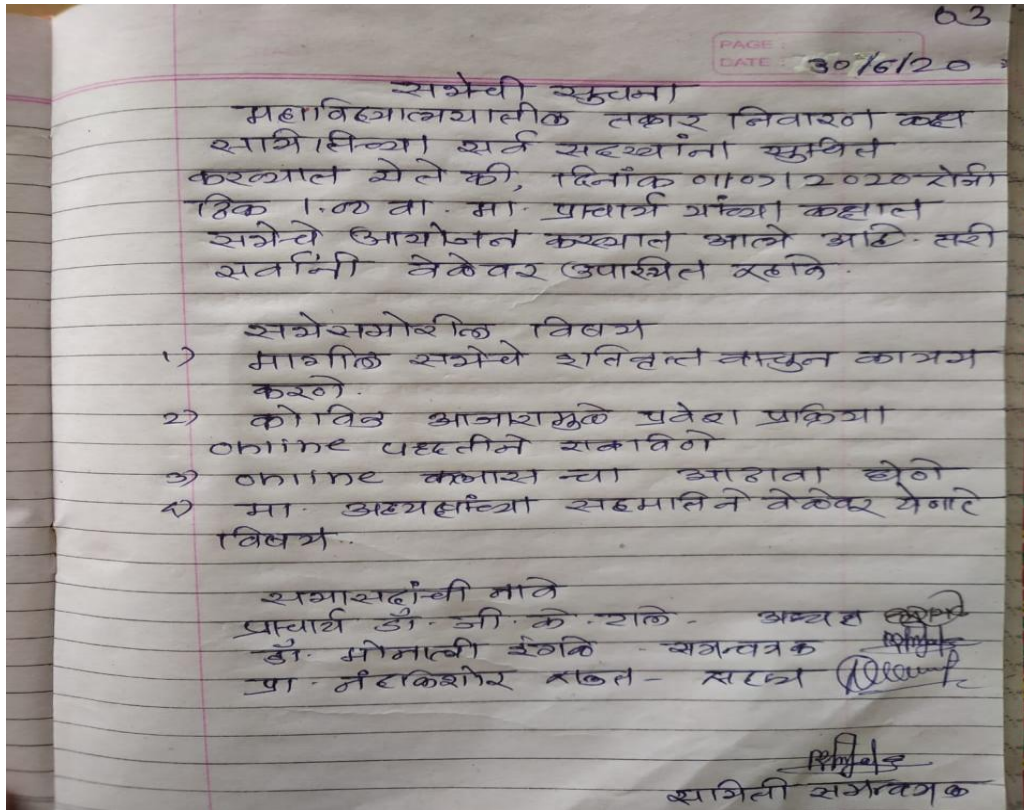 03
PAGE :
DATE : 30/6/20
सभेची सुचना
महाविद्यालयातील तक्रार निवारण कक्ष
समितीच्या सर्व सदस्यांना सुचित
करण्यात येते की, दिनांक 010712020 रोजी
ठिक 1.00 वा. मा. प्राचार्य यांच्या कक्षात
सभेचे आयोजन करण्यात आले आहे. तरी
सर्वांनी वेळेवर उपस्थित रहावे.
सभेसमोरील विषय
1) मागील सभेचे इतिवृत्त वाचून कायम
करणे.
2) कोविड आजारामुळे प्रवेश प्रक्रिया
online पद्धतीने राबविणे
3) online क्लास चा आढावा घेणे
4) मा. अध्यक्षांच्या सहमतिने वेळेवर येणारे
विषय.
सभासदांची नावे
प्राचार्य डॉ. जी. के. - अध्यक्ष
डॉ. मोनाली इंगळे - समन्वयक
प्रा. नंदकिशोर राऊत - सदस्य
समिती समन्वयक